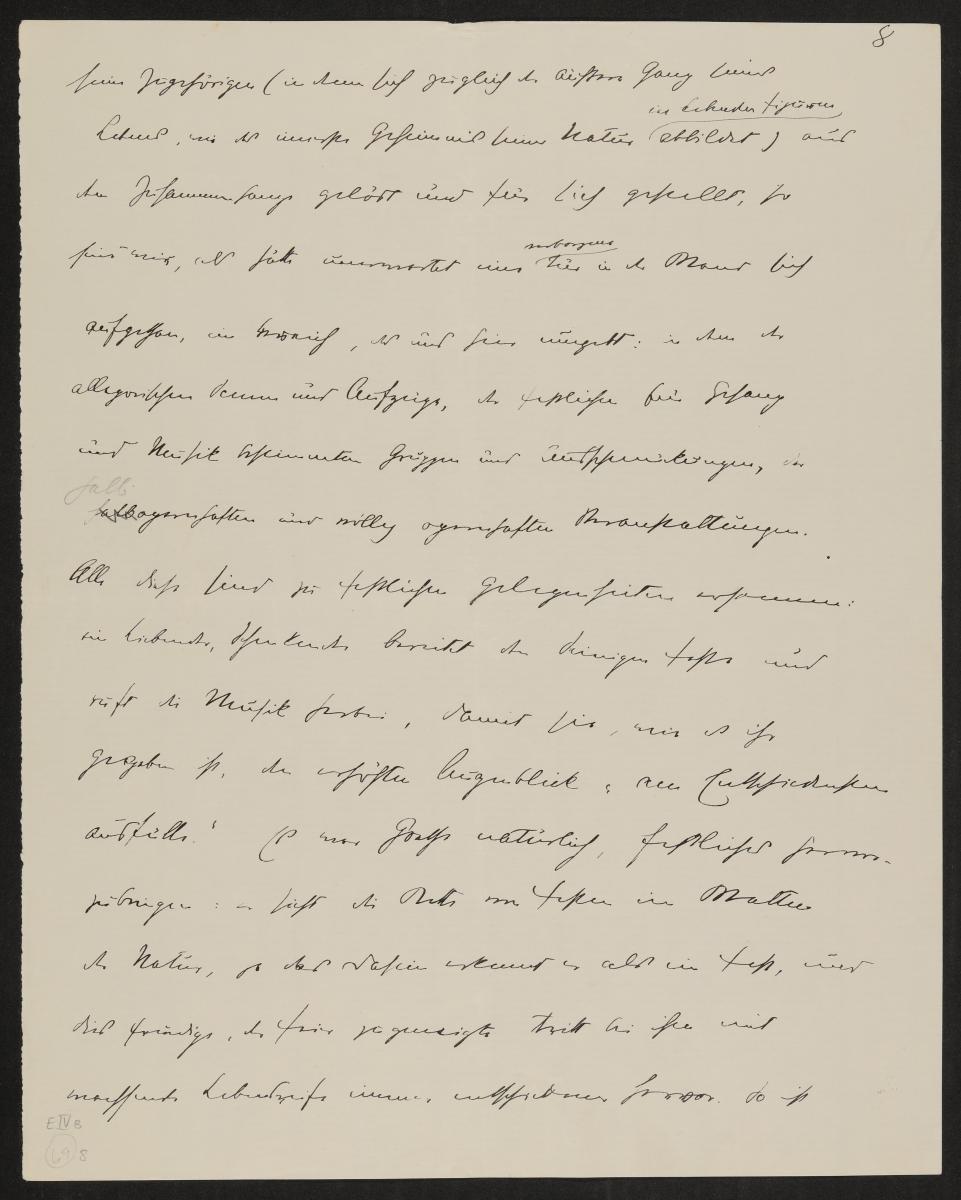 8
seine Zugehörigen (in dem sich zugleich der äussere Gang seines
in lebenden Figuren
Lebens, wie das innerste Geheimnis seiner Natur abbildet) aus
dem Zusammenhange gelöst und für sich gestellt, so
verborgene
mir, als hätte unerwartet eine Tür in der Wand sich
aufgethan, ein Bereich, das uns hier umgibt: in dem der
allegorischen Scenen und Aufzüge, der festlichen für Gesang
und Musik bestimmten Gruppen und Ausschmückungen, der
halb
halbopernhaften und völlig opernhaften Veranstaltungen.
Alle diese sind zu festlichen Gelegenheiten ersonnen:
ein Liebender, Schenkender bereitet den Seinigen Feste und
ruft die Musik herbei, damit sie, wie es ihr
gegeben ist, den erhöhten Augenblick „am Entschiedensten
ausfülle." Es war Goethe natürlich, Festliches hervor-
zubringen: er sieht die Kette von Festen im Walten
der Natur, ja das Dasein erkennt er als ein Fest, und
dies freudige, der Feier zugeneigte tritt bei ihm mit
wachsender Lebensreife immer entschiedener hervor. So ist
E IV B
69 8